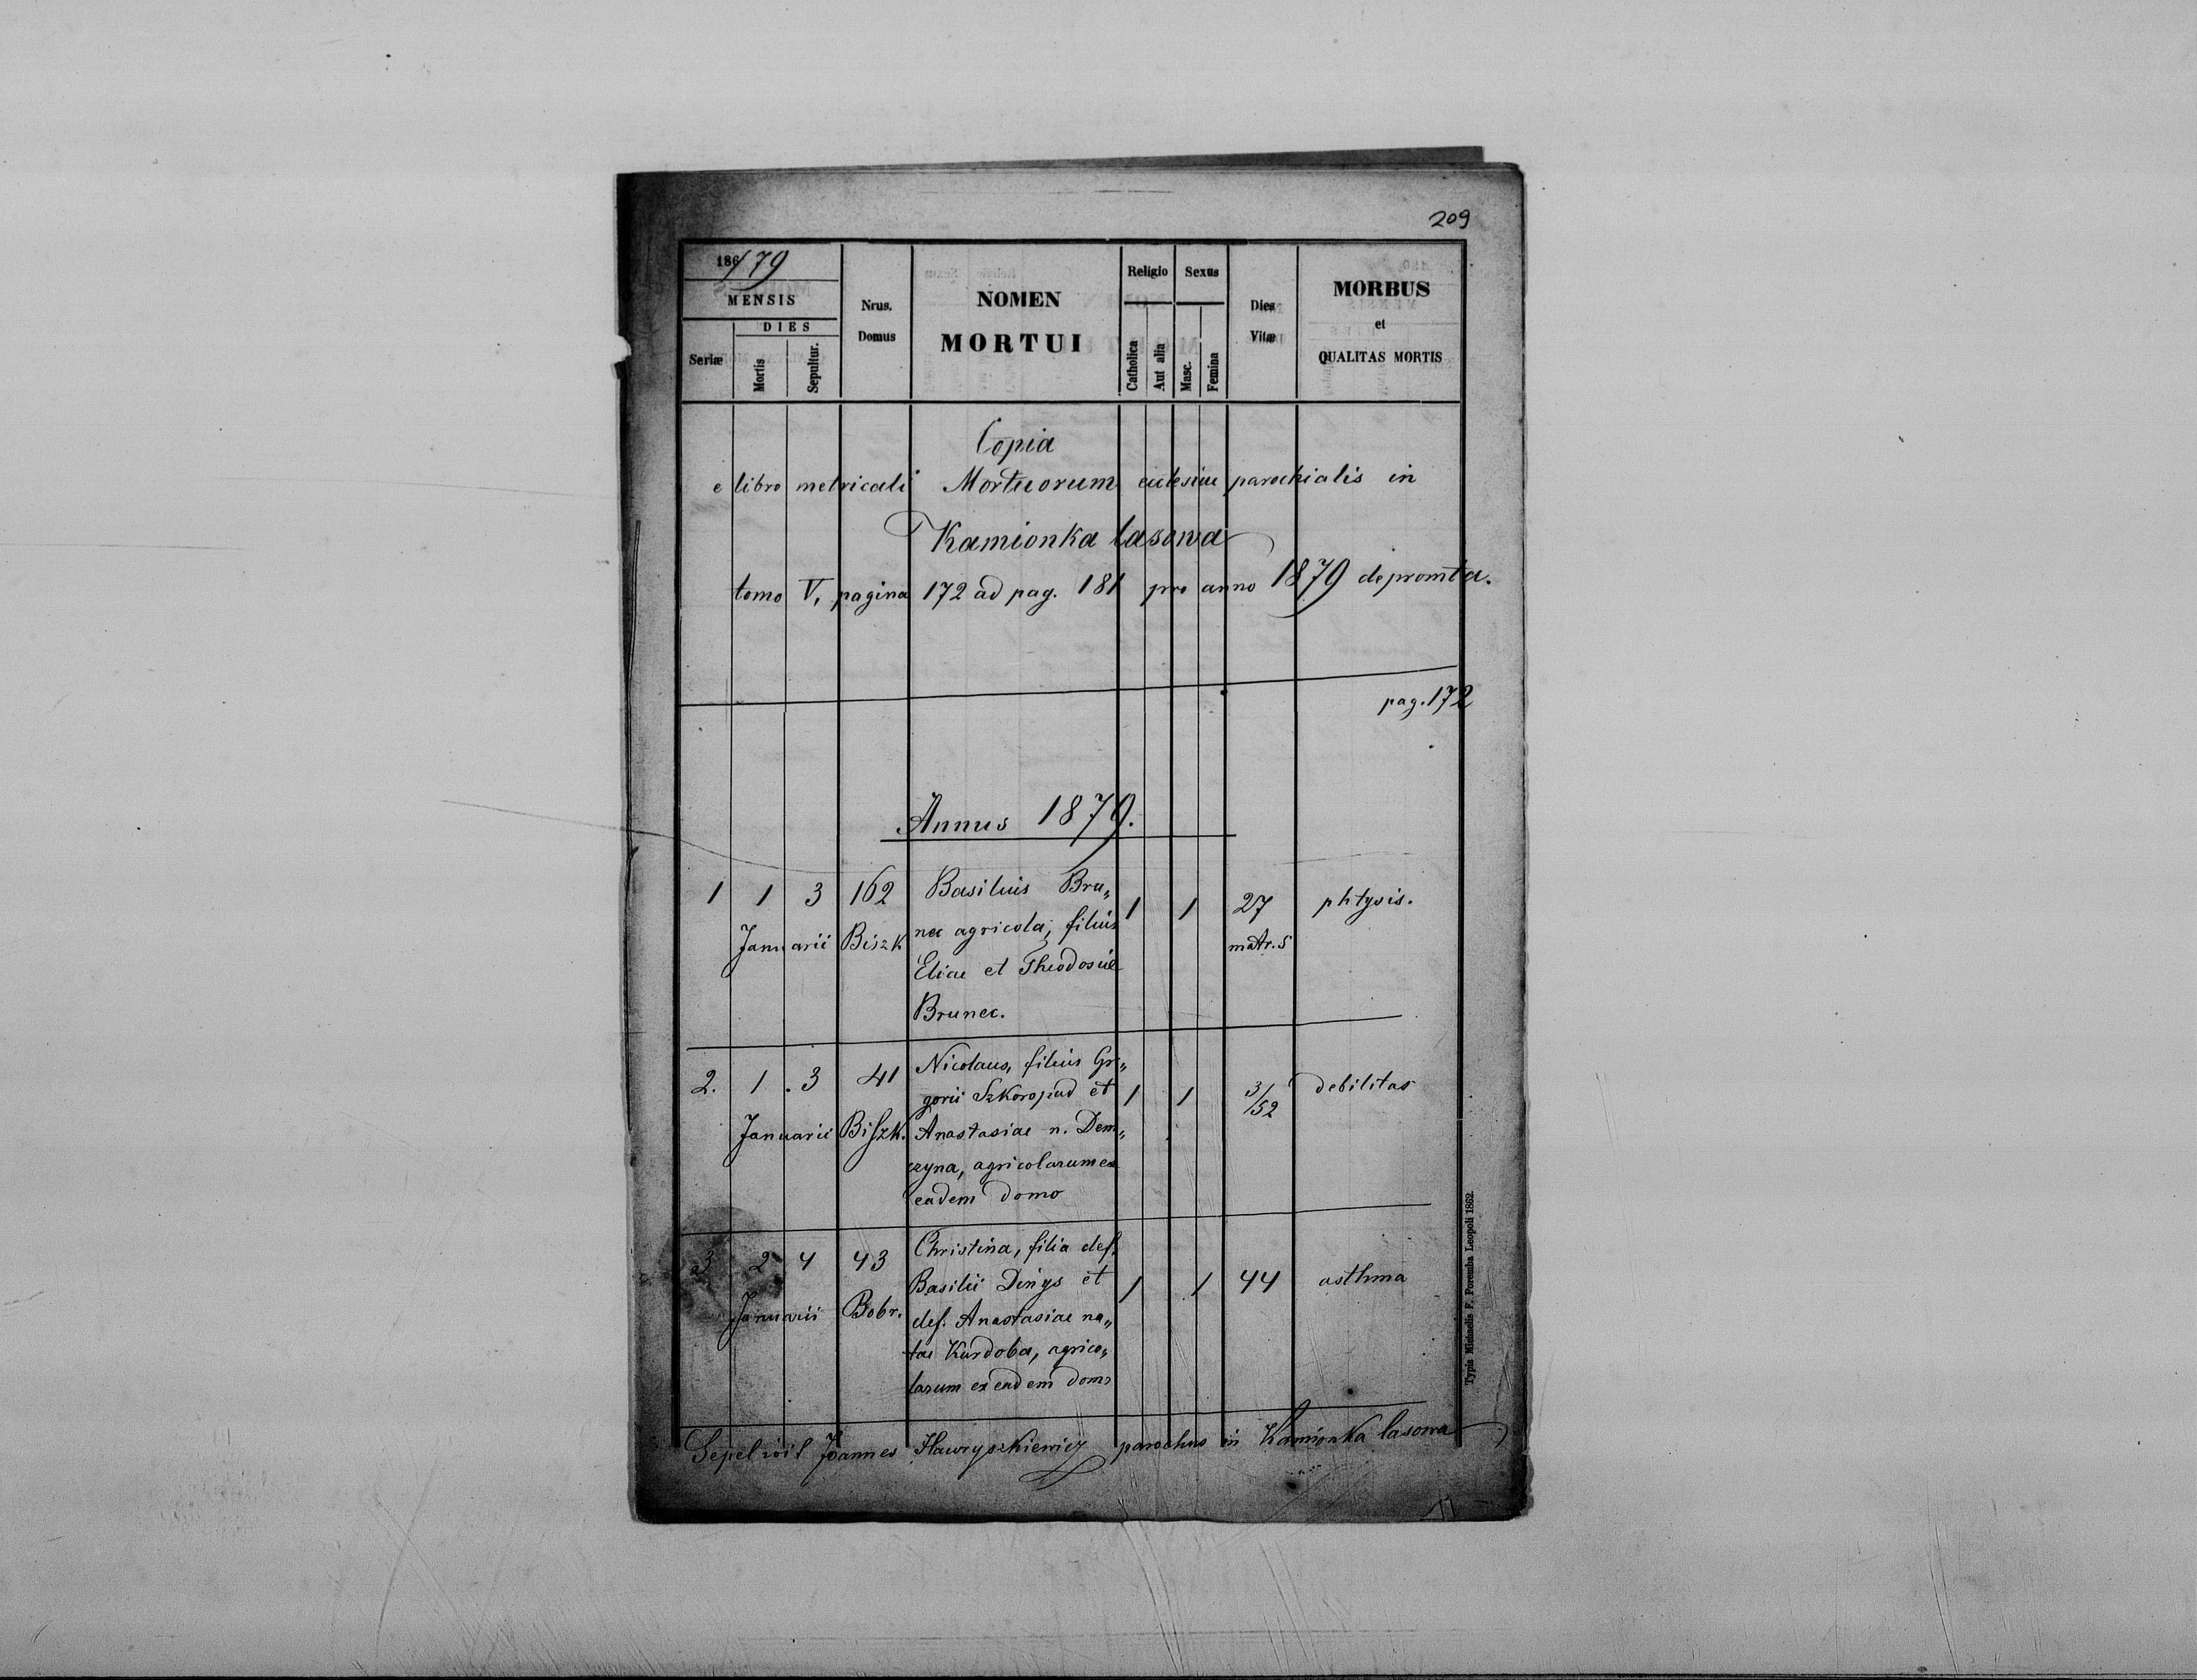 209
186/79
MENSIS
DIES
Seriæ
Mortis
Sepultur.
Nrus.
Domus
NOMEN
MORTUI
Religio
Sexus
Catholica
Aut alia
Masc.
Femina
Dies
Vitæ
MORBUS
et
QUALITAS MORTIS
Copia
e libro metricali Mortuorum ecclesiae parochialis in
Kamionka lasowa
tomo V, pagina 172 ad pag. 181 pro anno 1879 depromta.
pag. 172
Annus 1879.
1 1 3 162 Basilius Bru„
nec agricola, filius 1 1 27 phtysis.
Januarii Biszk matr. 5
Eliae et Theodosiae
Brunec.
2. 1 . 3 41 Nicolaus, filius Gr„
gorii Szkoropad et 1 1 3/52 debilitas
Januarii Biszk. Anastasiae n. Dem„
czyna, agricolarum ex
eadem domo
3 2 4 43 Christina, filia def.
Basilii Dinys et 1 1 44 asthma
Januarii Bobr. def. Anastasiae na„
tae Kurdoba, agrico„
larum ex eadem domo
Sepelivit Joannes Hawryszkiewicz parochus in Kamionka lasowa
Typis Michaelis F. Poremba Leopoli 1862.